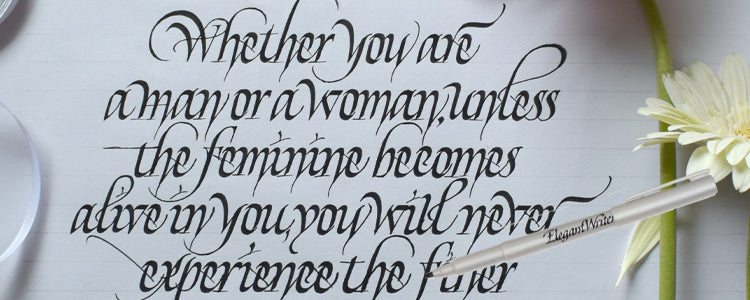 Whether you are
a man or a woman, unless
the feminine becomes
alive in you, you will never
experience the finer
Elegant Writer